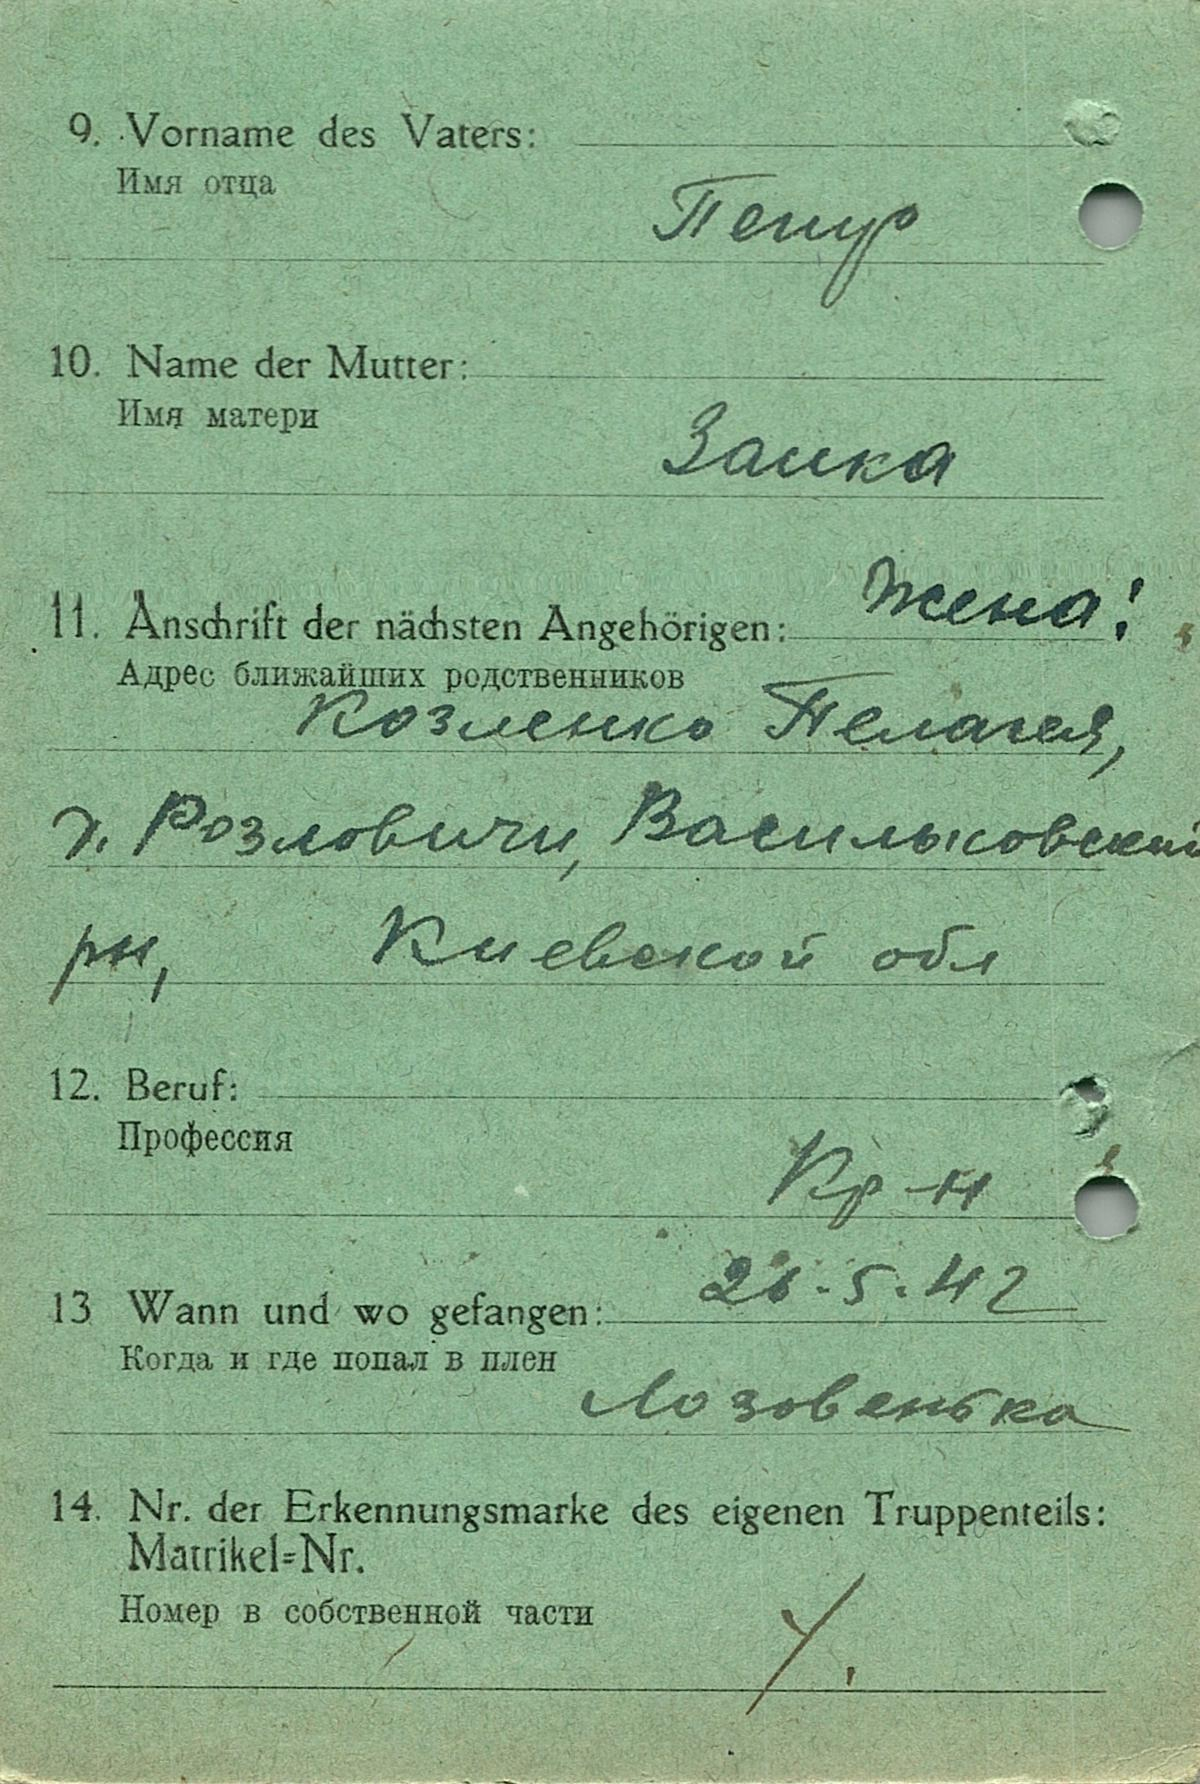 9. Vorname des Vaters:
Имя отца
Петр
10. Name der Mutter:
Имя матери
Заика
11. Anschrift der nächsten Angehörigen: Жена!
Адрес ближайших родственников
Козленко Пелагея,
Розловичи, Васильковский
рн, Киевской обл
12. Beruf:
Профессия
Кр-н
13 Wann und wo gefangen: 26.5.42
Когда и где попал в плен
Лозовенька
14. Nr. der Erkennungsmarke des eigenen Truppenteils:
Matrikel=Nr.
Номер в собственной части